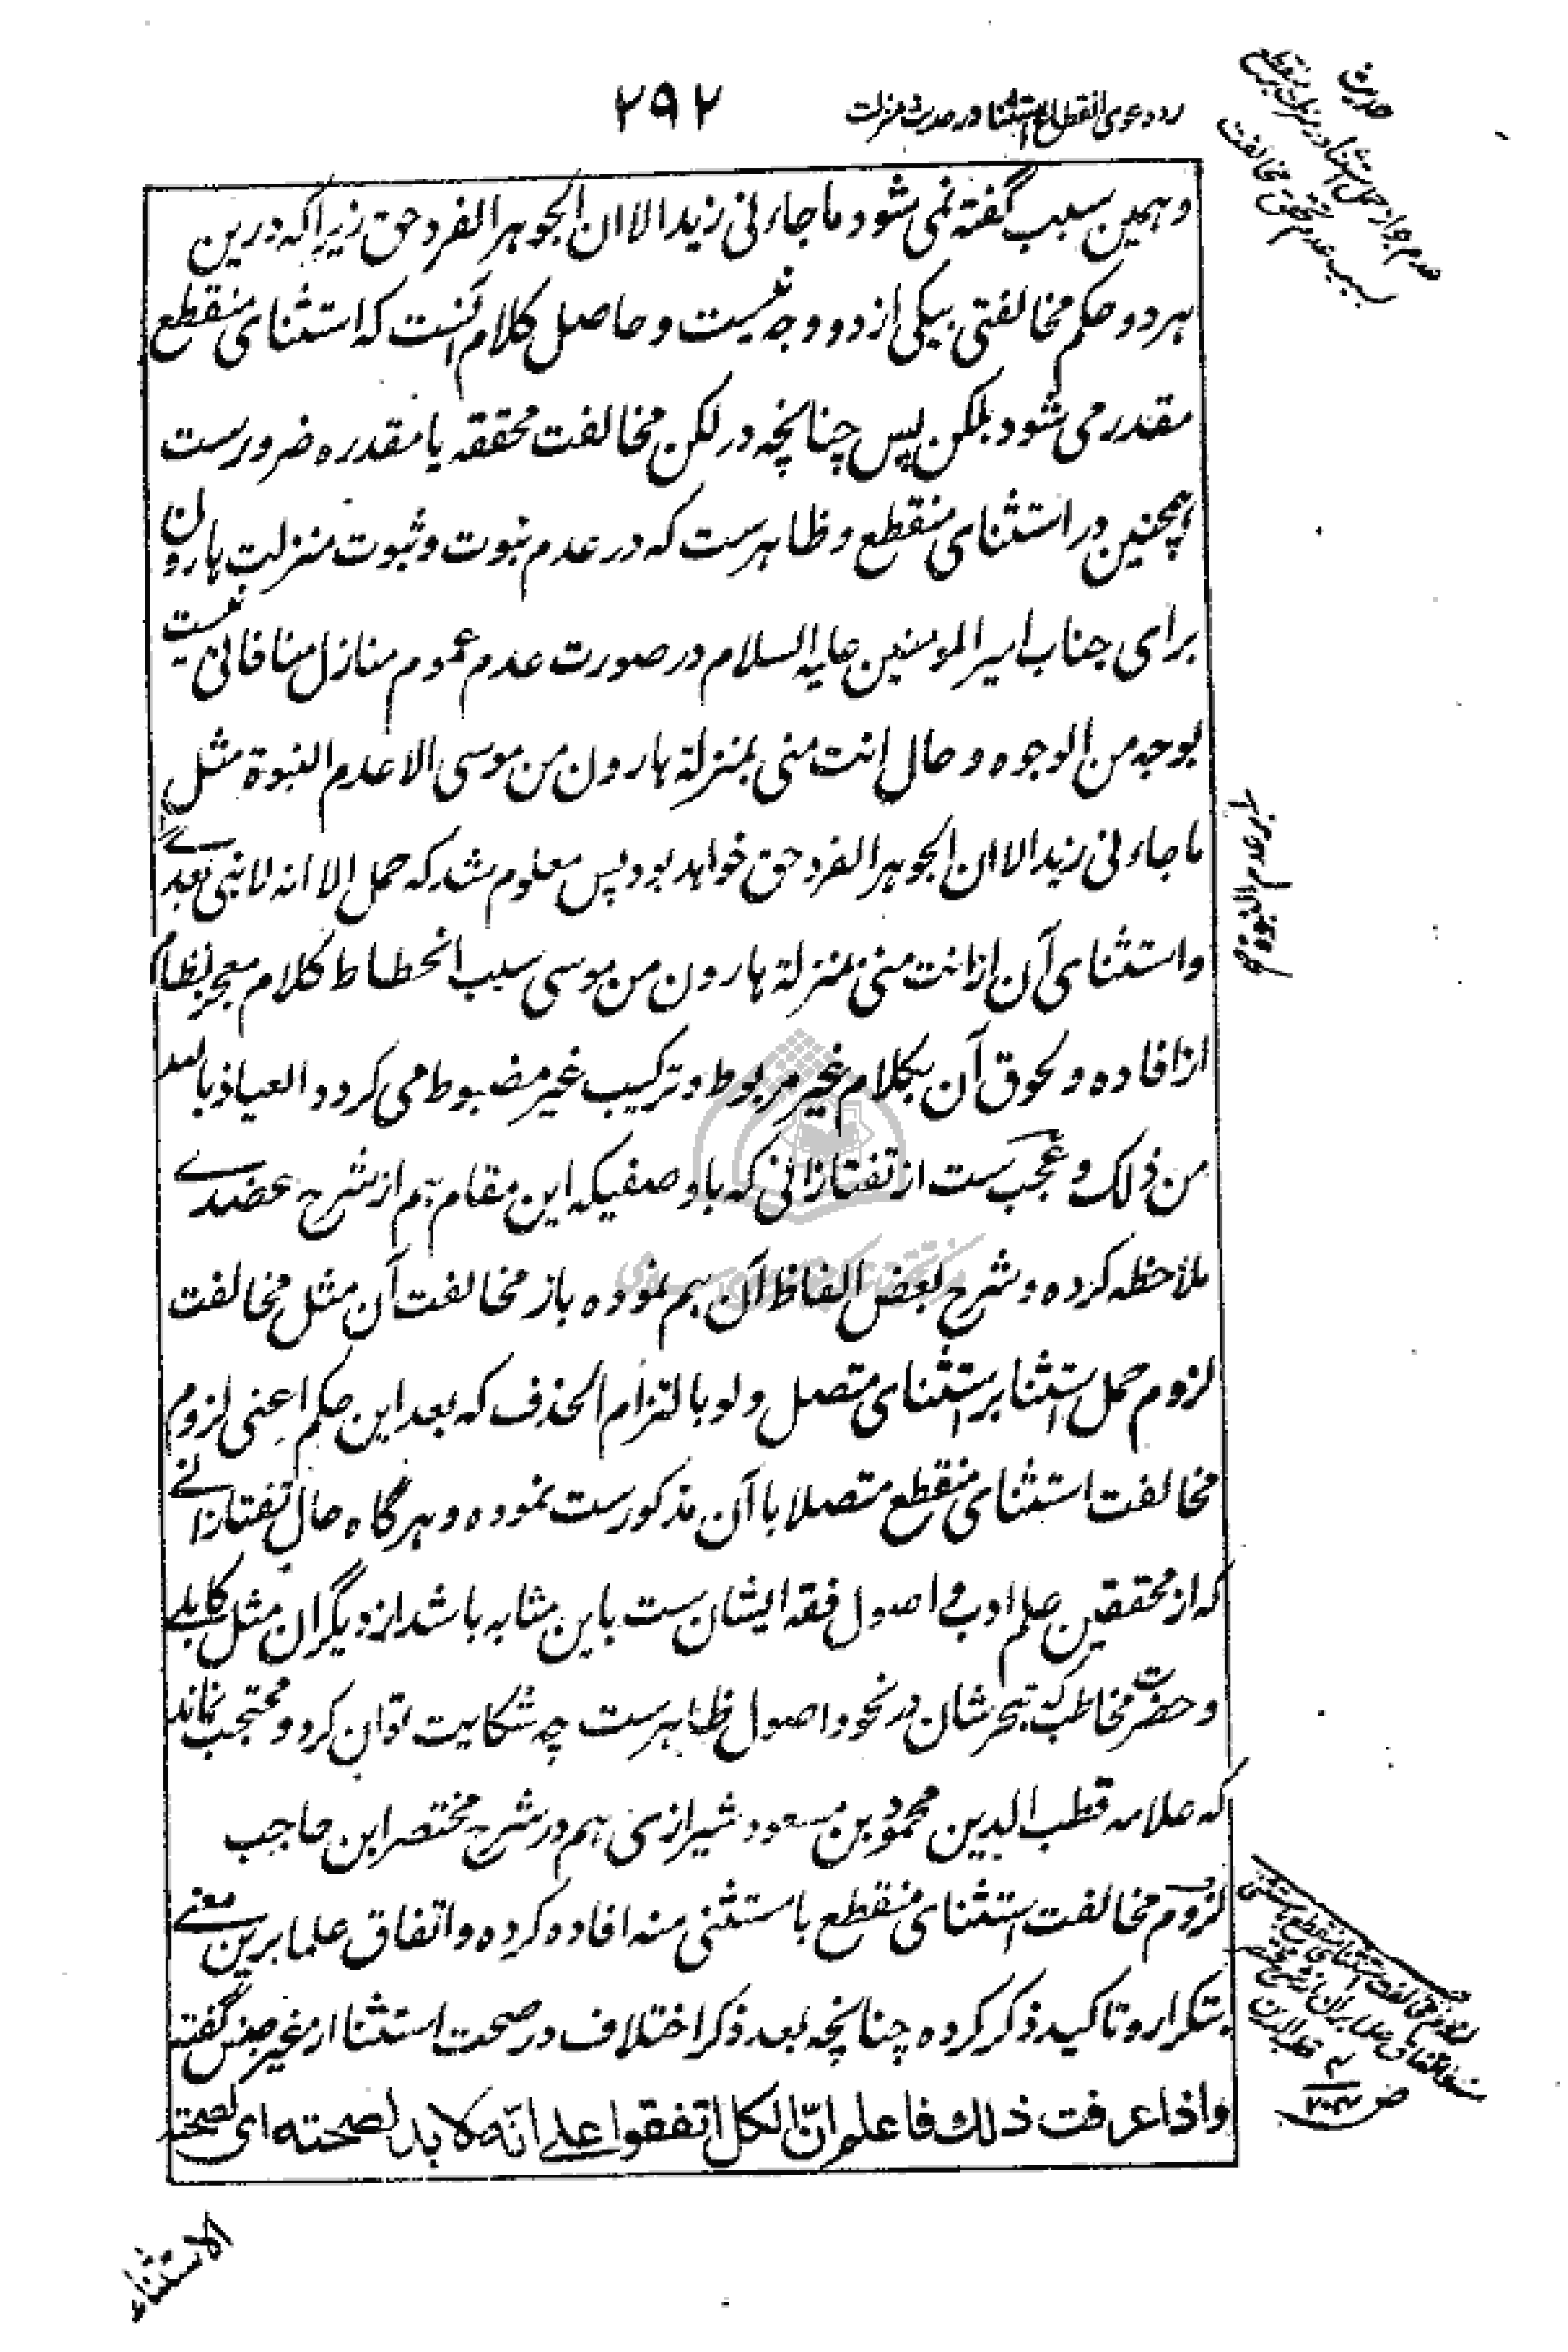 ۲۹۲
رد دعوی انقطاع استثنا در حدیث منزلت
و همین سبب گفته نمی شود ما جاءنی زیدا الا ان الجوهر الفرد حق زیرا که درین
هر دو حکم مخالفتی بیکی از دو وجه نیست و حاصل کلام آنست که استثنای منقطع
مقدر می شود بلکن پس چنانچه در لکن مخالفت محققه یا مقدره ضرورست
همچنین در استثنای منقطع و ظاهرست که در عدم نبوت و ثبوت منزلت هارون
برای جناب امیر المومنین علیه السلام در صورت عدم عموم منازل منافاتی نیست
بوجه من الوجوه و حال انت منی بمنزلة هارون من موسی الا عدم النبوة مثل
ما جاءنی زیدا الا ان الجوهر الفرد حق خواهد بود پس معلوم شد که حمل الا انه لا نبی بعدی
و استثنای آن از انت منی بمنزلة هارون من موسی سبب انحطاط کلام معجز نظام
از افاده و لحوق آن بکلام غیر مربوط و ترکیب غیر مضبوط می کردد العیاذ بالله
من ذلک و عجب ست از تفتازانی که با وصفیکه این مقام هم از شرح عضدی
ملاحظه کرده و شرح بعض الفاظ آن هم نموده باز مخالفت آن مثل مخالفت
لزوم حمل استثنا بر استثنای متصل و لو بالتزام الحذف که بعد این حکم اعنی لزوم
مخالفت استثنای منقطع متصلا با آن مذکورست نموده و هرگاه حال تفتازانی
که از محققین علم ادب و اصول فقه ایشان ست باین مثابه باشد از دیگران مثل کابلی
و حضرت مخاطب که تبحرشان در نحو و اصول ظاهرست چه شکایت توان کرد و محتجب نماند
که علامه قطب الدین محمود بن مسعود شیرازی هم در شرح مختصر ابن حاجب
لزوم مخالفت استثنای منقطع با مستثنی منه افاده کرده و اتفاق علما برین معنی
بتکرار و تاکید ذکر کرده چنانچه بعد ذکر اختلاف در صحت استثنا از غیر جنس گفته
و اذا عرفت ذلك فاعلم انّ الكل اتفقوا على انّه لا بد لصحته اى لصحة
الاستثناء